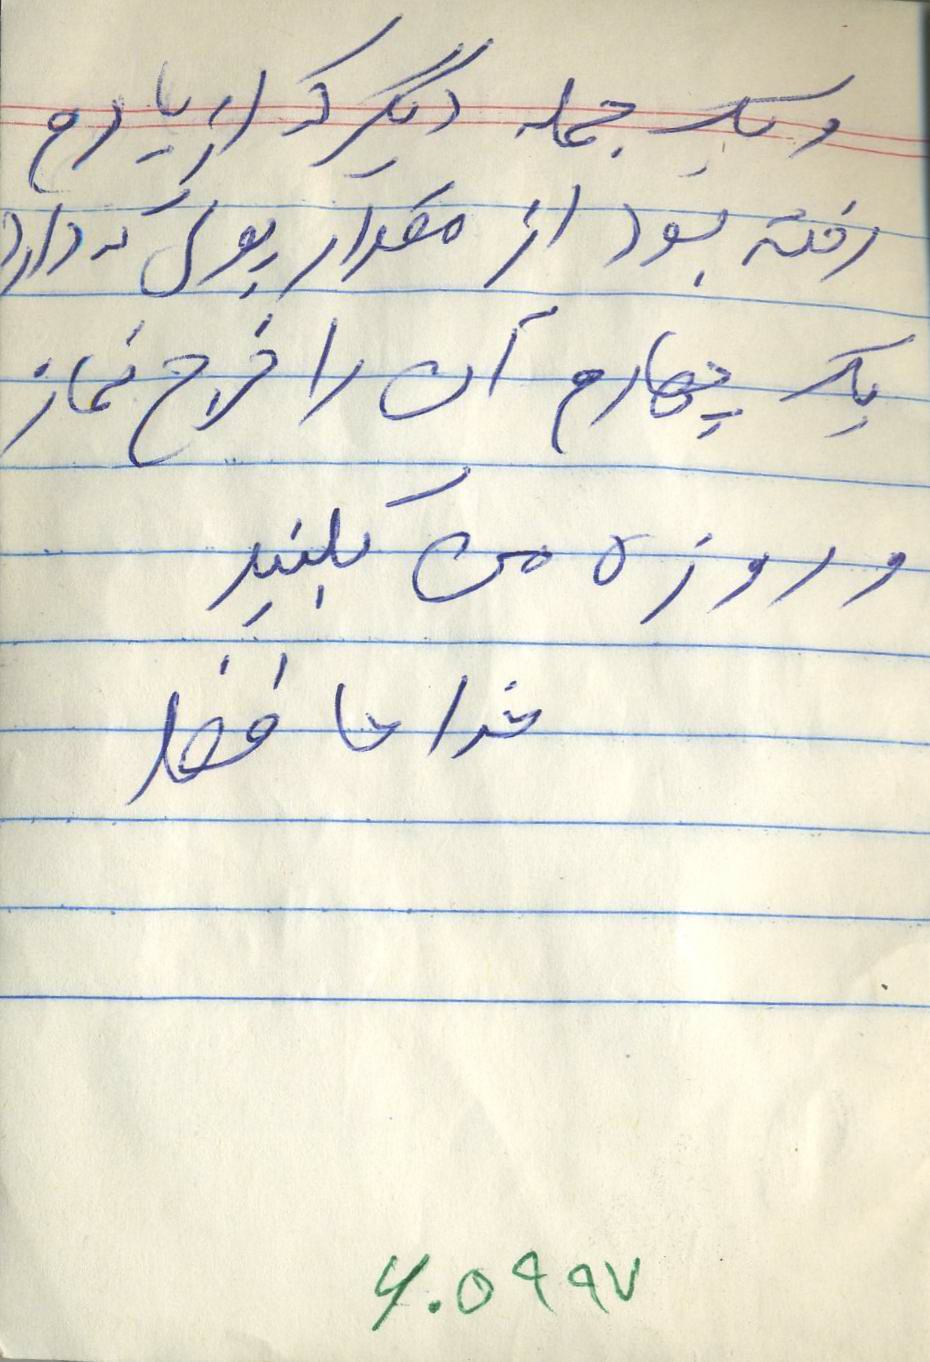 و یک جمله دیگر که از یادم
رفته بود از مقدار پولی که دارد
یک چهارم آن را خرج نماز
و روزه می بکنید
خدا حافظ
۶۰۵۹۹۷